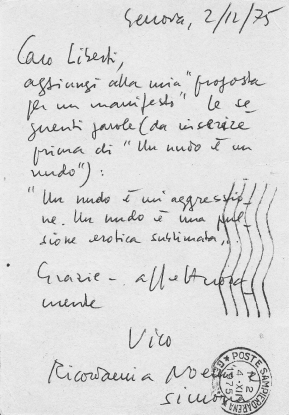 Genova, 2/12/75
Caro Liberti,
aggiungi alla mia "proposta
per un manifesto" le se
guenti parole (da inserire
prima di "Un nudo è un
nudo"):
"Un nudo è un'aggressio-
ne. Un nudo è una pul-
sione erotica sublimata„.
Grazie - affettuosa
mente
Vico
Ricordami a Noemi
Simona
POSTE SAMPIERDARENA
4 XII
1975